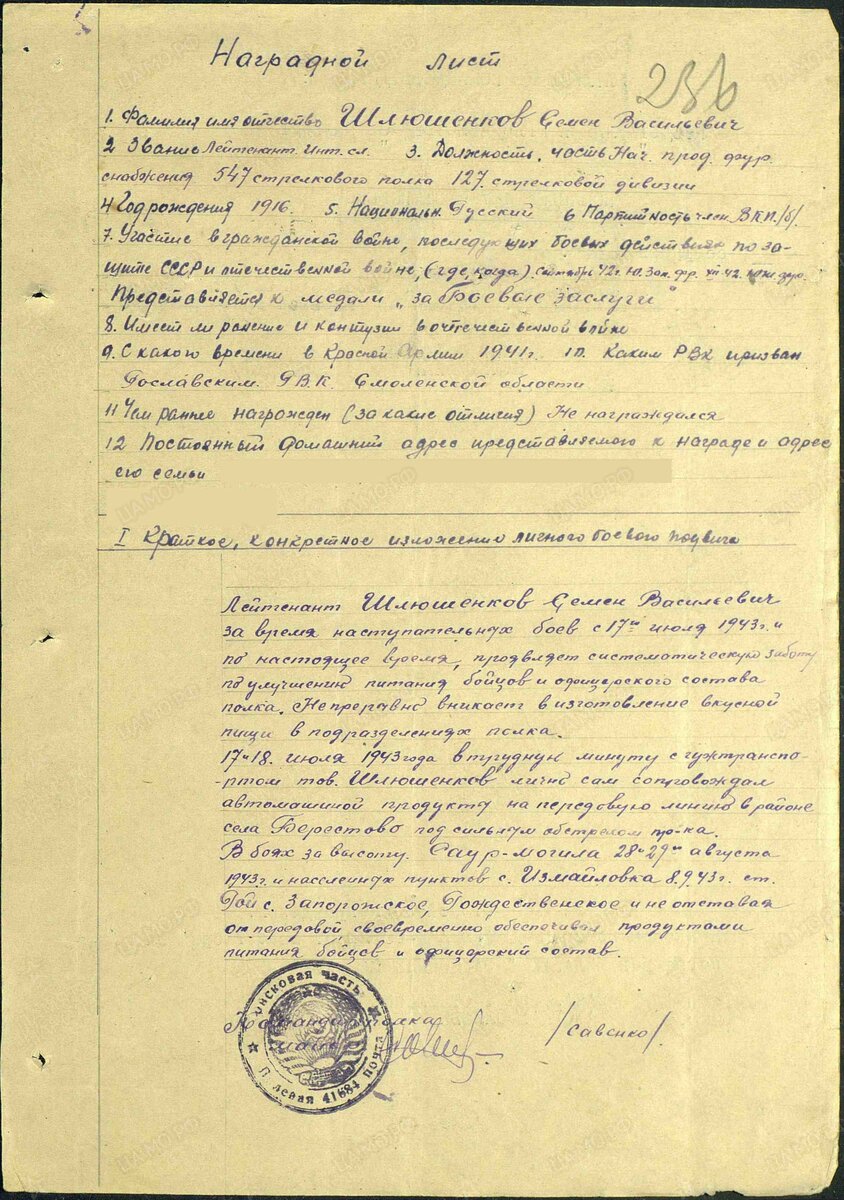 Наградной лист
236
1. Фамилия имя отчество Шлюшенков Семен Васильевич
2 Звание Лейтенант. Инт. сл. 3. Должность, часть Нач. прод. фур.
снабжения 547 стрелкового полка 127. стрелковой дивизии
4 Год рождения 1916. 5. Национальн. Русский 6 Партийность член ВКП./б/.
7. Участие в гражданской войне, последующих боевых действиях по за-
щите СССР и отечественной войне, (где, когда). Сентябрь 42г. Ю. Зак. фр.
Представляется к медали „за Боевые заслуги"
8. Имеет ли ранение и контузии в отечественной войне
9. С какого времени в Красной Армии 1941г. 10. Каким РВК призван
Рославским. РВК. Смоленской области
11 Чем ранее награжден (за какие отличия) Не награждался
12 Постоянный домашний адрес представляемого к награде и адрес
его семьи
I Краткое, конкретное изложение личного боевого подвига
Лейтенант Шлюшенков Семен Васильевич
за время наступательных боев с 17го июля 1943г. и
по настоящее время, проявляет систематическую заботу
по улучшению питания бойцов и офицерского состава
полка. Непрерывно вникает в изготовление вкусной
пищи в подразделениях полка.
17-18. июля 1943 года в трудную минуту с гужтранспо-
-ртом тов. Шлюшенков лично сам сопровождал
автомашиной продукты на передовую линию в районе
села Берестово под сильным обстрелом пр-ка.
В боях за высоту. Саур-могила 28-29го августа
1943г. и населенных пунктов с. Измайловка 8.9.43г. ст.
Рой с. Запорожское, Рождественское и не отставая
от передовой своевременно обеспечивал продуктами
питания бойцов и офицерский состав.
Командир полка
майор /Савенко/.
Войсковая часть
Полевая почта 41684
ЦАМО.РФ